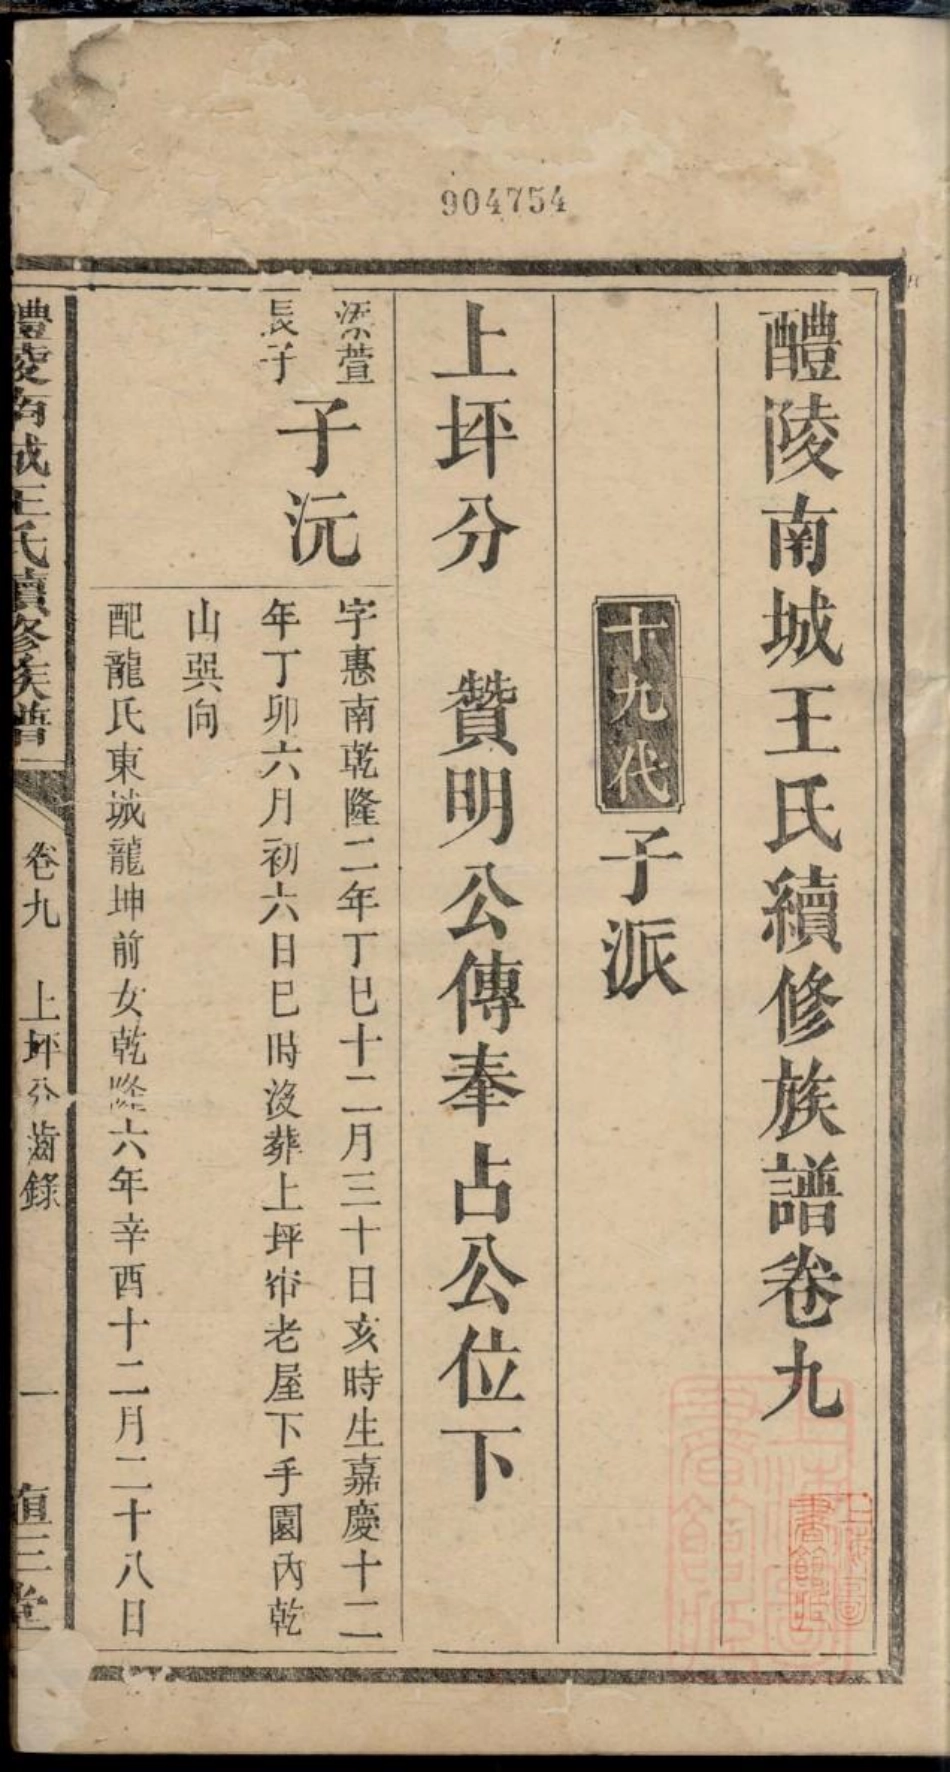 904754
醴陵南城王氏續修族譜卷九
十九代 子派
上坪分 贊明公傳奉占公位下
添萱
長子
子沅
字惠南乾隆二年丁巳十二月三十日亥時生嘉慶十二
年丁卯六月初六日巳時沒葬上坪市老屋下手園內乾
山巽向
配龍氏東城龍坤前女乾隆六年辛酉十二月二十八日
醴陵南城王氏續修族譜
卷九 上坪分齒錄
一
植三堂
上海圖書館藏
上海圖書館藏